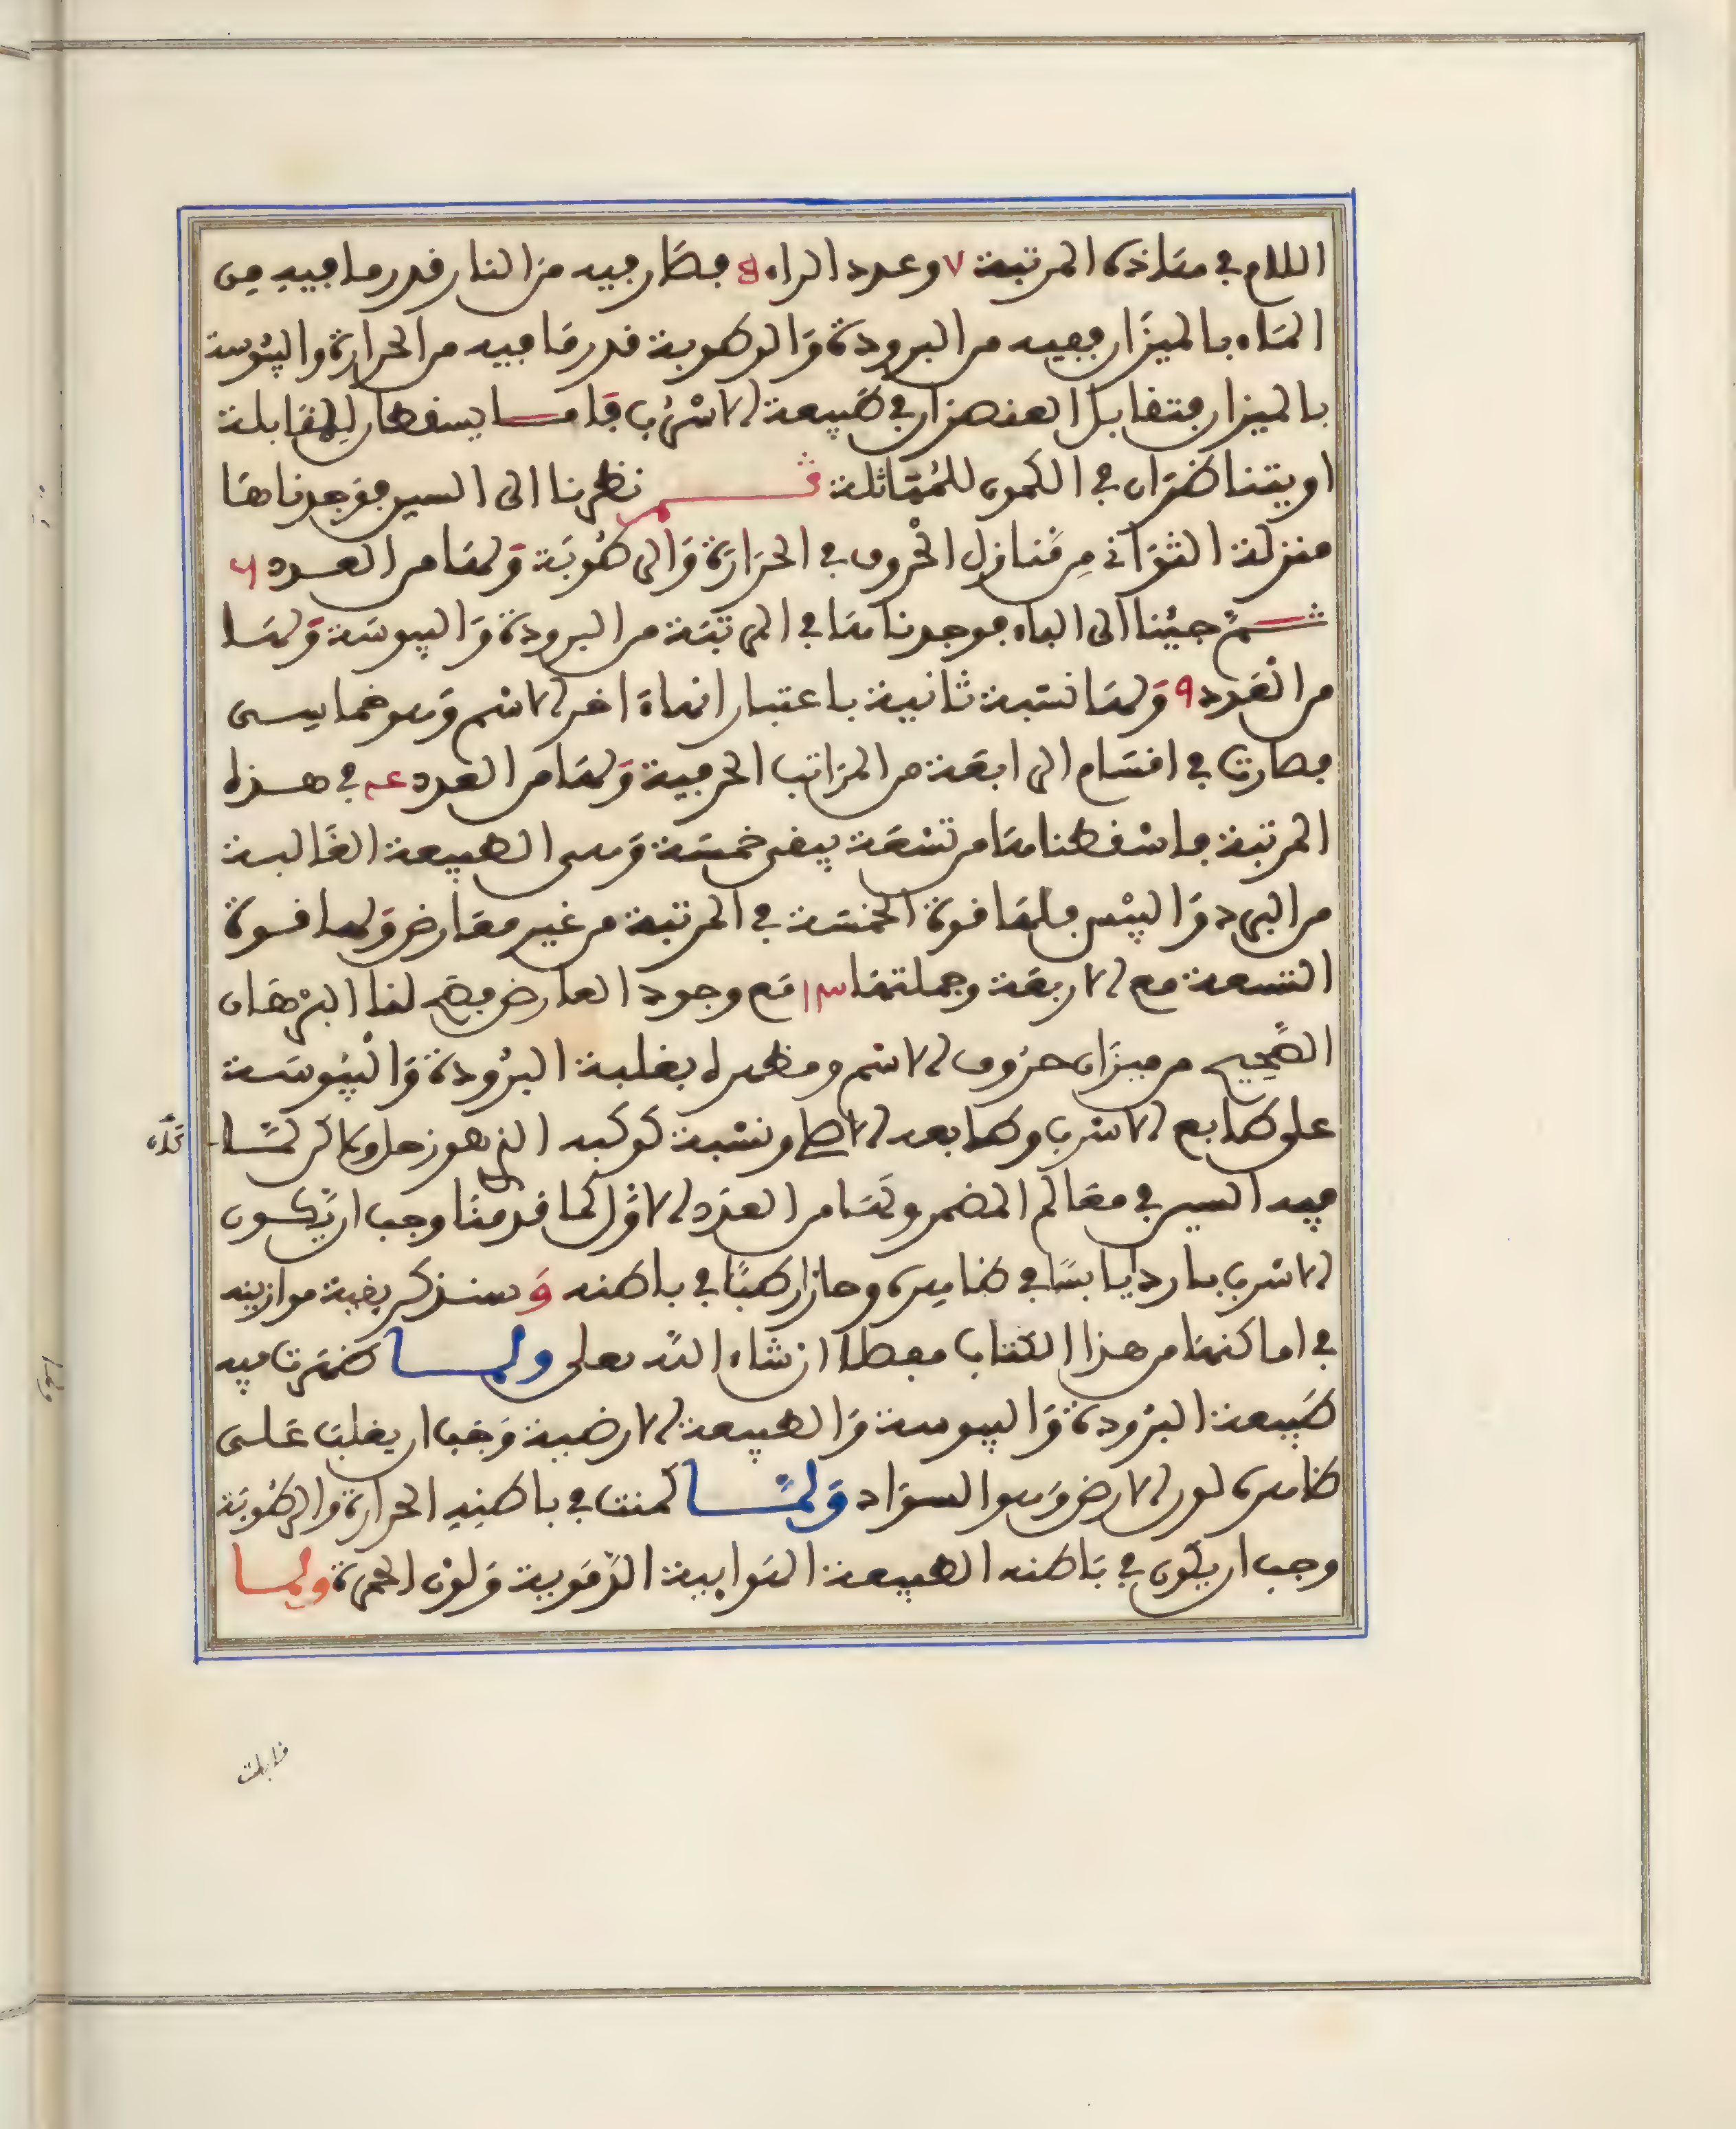 اللام في هاذه المرتبة ٧ وعدد الراء 8 فصار فيه من النار قدر ما فيه من
الماء بالميزان ففيه من البرودة والرطوبة قدر ما فيه من الحرارة واليبوسة
بالميزان فتقابل العنصران في طبيعة الاسرب فاما يسقطان للمقابلة
او يتناظران في الكمون للمماثلة ثم نظرنا الى السين فوجدناها
منزلة الثواني من منازل الحروف في الحرارة والرطوبة ولها من العدد ٦
ثم جئنا الى الباء فوجدناها في المرتبة من البرودة واليبوسة ولها
من العدد 9 ولها نسبة ثانية باعتبار انهاء اخر الاسم وهو خماسي
فصارت في اقسام الرابعة من المراتب الحرفية ولها من العدد عـ في هذه
المرتبة فاسقطناها من تسعة يبقى خمسة وهي الطبيعة الغالبة
من البرد واليبس فلها قوة الخمسة في المرتبة من غير معارض ولها قوة
التسعة مع الاربعة وجملتها ١٣ مع وجود العارض فصح لنا البرهان
الصحيح من ميزان حروف الاسم ومظهره بغلبة البرودة واليبوسة
على طابع الاسرب وطابعه الاصل ونسبة كوكبه الذي هو زحل ولاكن لما
فيه السين في معالم المضمر ولها من العدد الاول كما قدمنا وجب ان يكون
الاسرب باردا يابسا في ظاهره وحارا رطبا في باطنه وسنذكر بقية موازينه
في اماكنها من هذا الكتاب مفصلا ان شاء الله تعلى ولما ظهرت فيه
طبيعة البرودة واليبوسة والطبيعة الارضية وجب ان يغلب على
ظاهره لون الارض وهو السواد ولما كمنت في باطنه الحرارة والرطوبة
وجب ان يكون في باطنه الطبيعة الهوايية الدموية ولون الحمرة ولما
قابلت